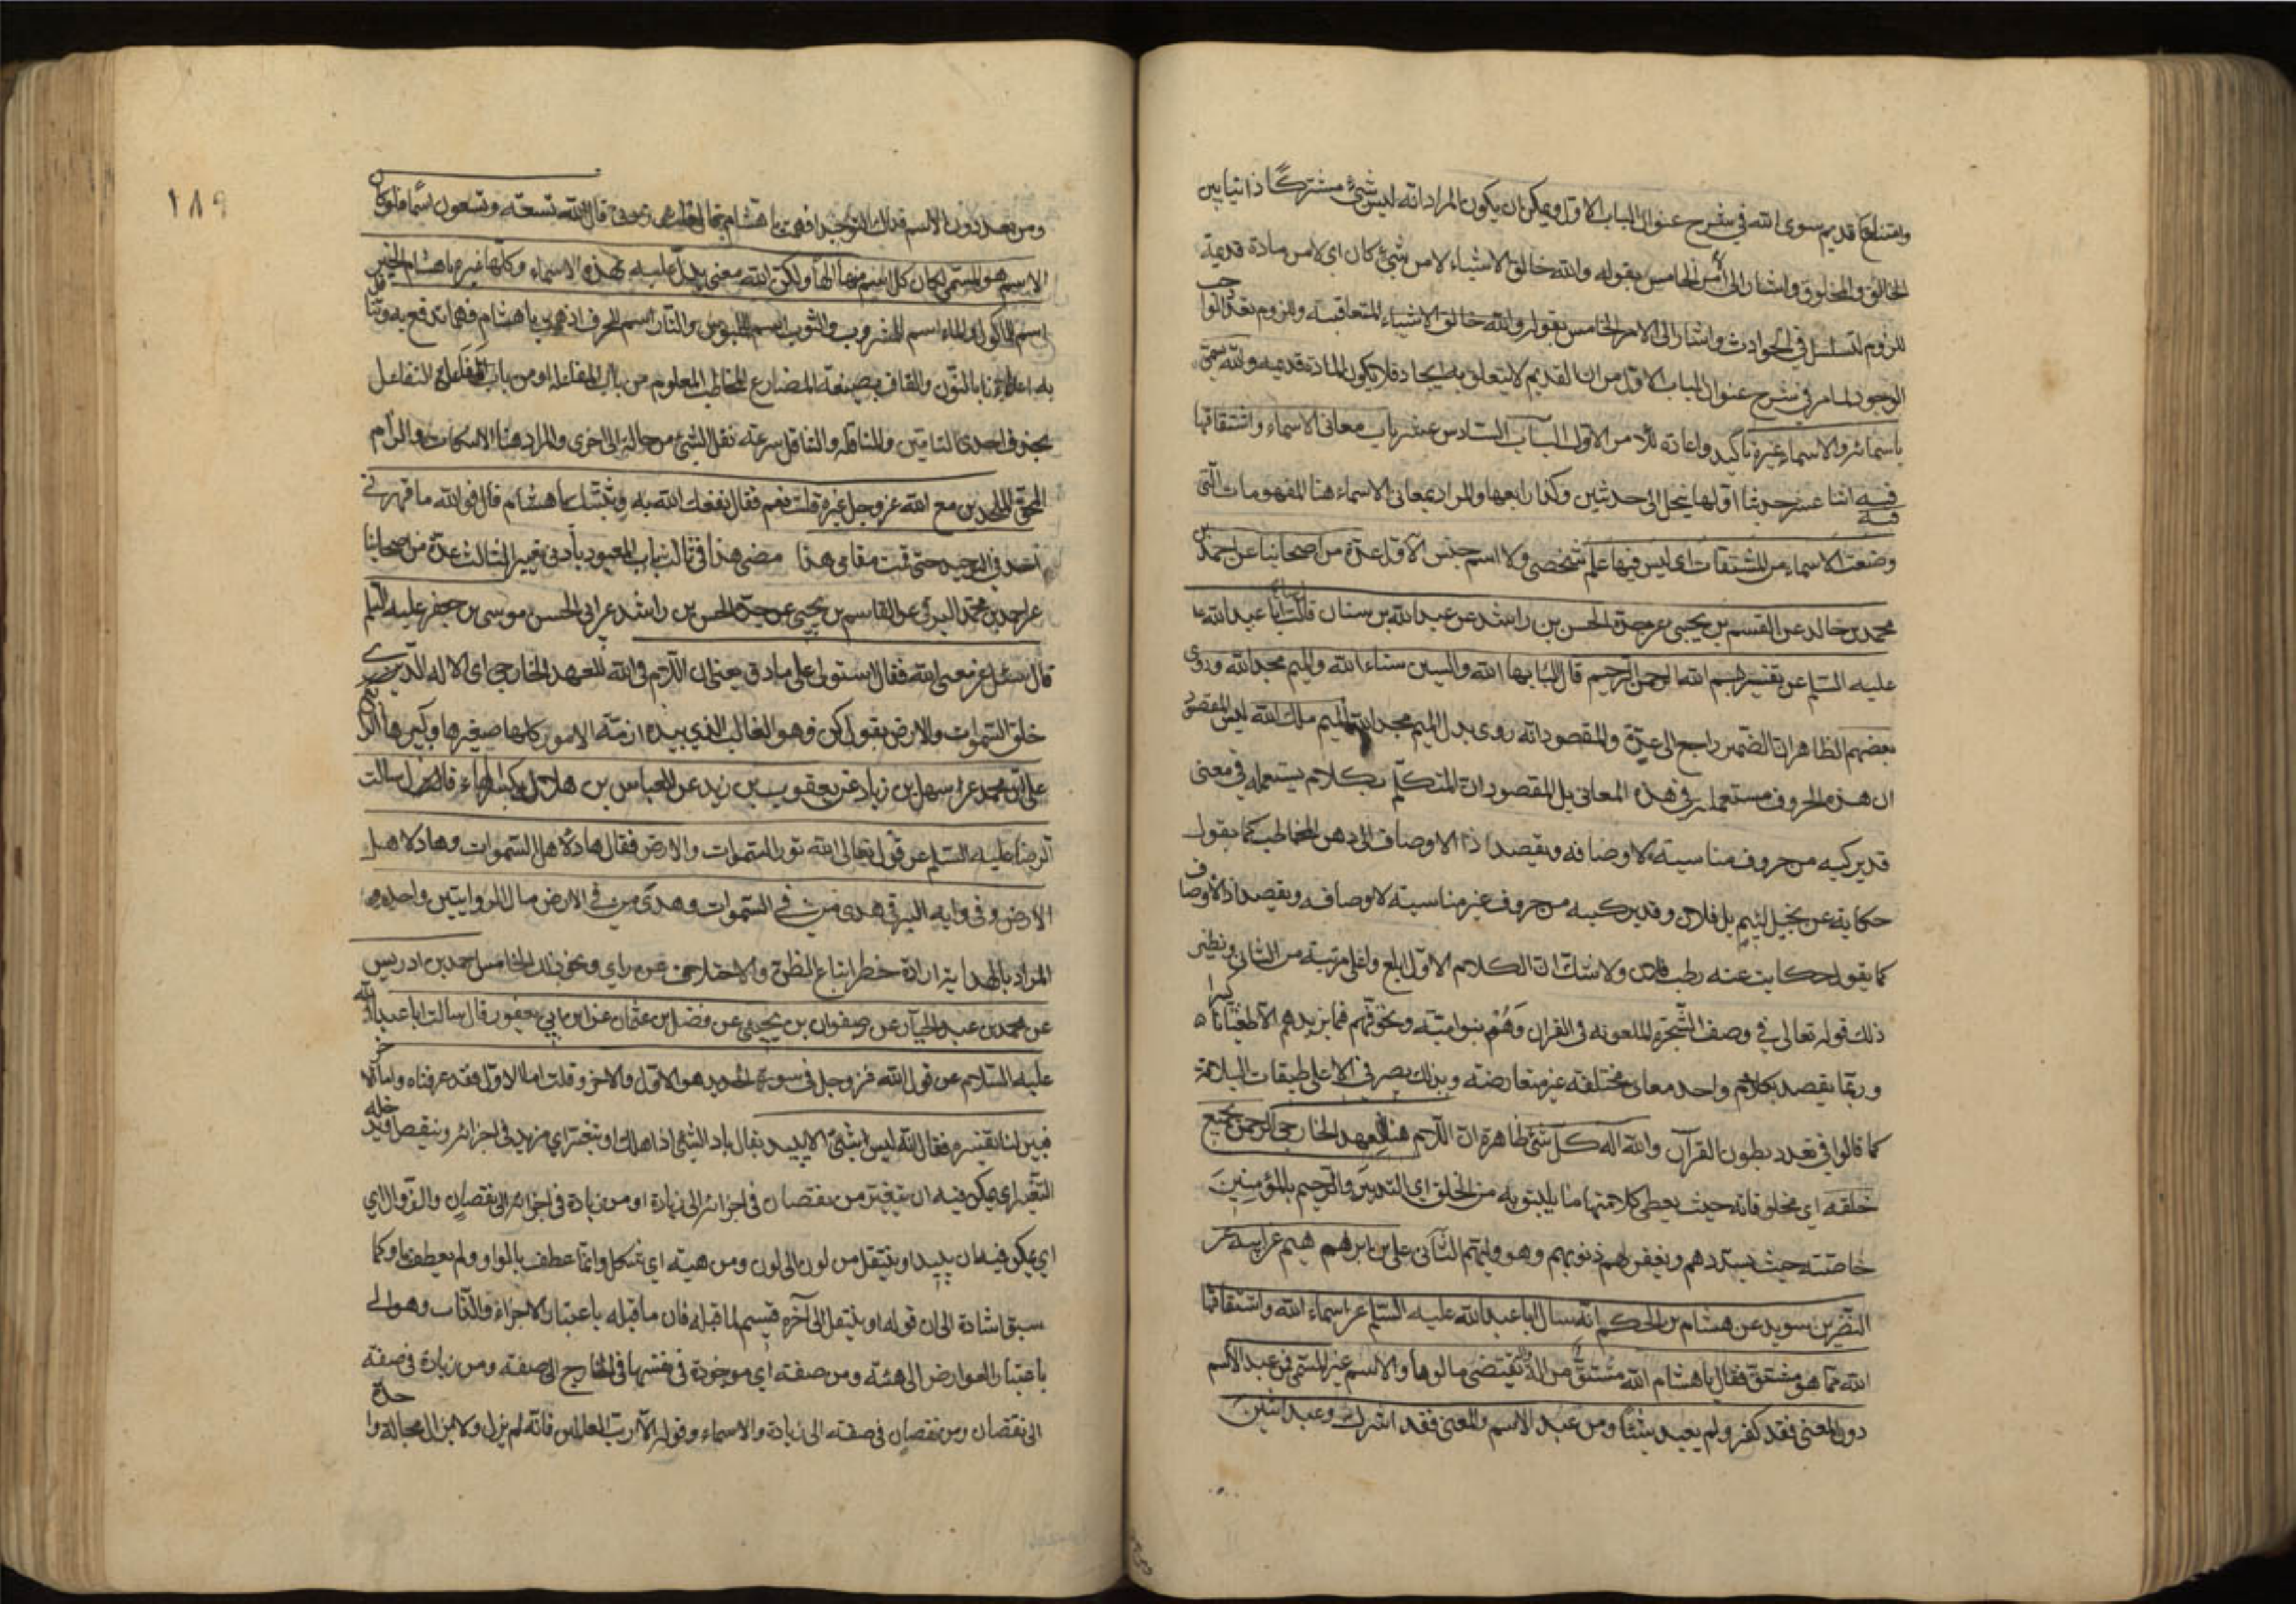 وامتناع قديم سوى الله في شرح عنوان الباب الاول ويمكن ان يكون المراد انه ليس شيء مشتركًا ذاتيا بين
الخالق والمخلوق واشار الى الخامس بقوله والله خالق الاشياء لا من شيء كان اي لا من مادة قديمة
للزوم التسلسل في الحوادث واشار الى الامر الخامس بقوله والله خالق الاشياء المتعاقبة وللزوم تعدد الواجب
الوجود لما مر في شرح عنوان الباب الاول من ان القديم لا يتعلق به ايجاد فلا يكون المادة قديمة والله يسمى
باسمائه والاسماء غيره تاكيد واعادة للامر الاول الباب السادس عشر باب معاني الاسماء واشتقاقها
فيه اثنا عشر حديثا اولها ينحل الى حدثين وكذا رابعها والمراد بمعاني الاسماء هنا المفهومات التي
وضعت الاسماء من المشتقات اي ليس فيها علم شخصي ولا اسم جنس الاول عدة من اصحابنا عن احمد بن
محمد بن خالد عن القسم بن يحيى عن جده الحسن بن راشد عن عبد الله بن سنان قال سالت ابا عبد الله
عليه السلم عن تفسير بسم الله الرحمن الرحيم قال الباء بهاء الله والسين سناء الله والميم مجد الله وروى
بعضهم الظاهر ان الضمير راجع الى عدة والمقصود انه روى بدل الميم مجد الله الميم ملك الله ليس المقصود
ان هذه الحروف مستعملة في هذه المعاني بل المقصود ان المتكلم بكلام يستعمله في معنى
قد يركبه من حروف مناسبة لاوصافه ويقصد اذا الاوصاف الى ذهن المخاطب كما يقول
حكاية عن بخيل لئيم بل فلان وقد يركبه من حروف غير مناسبة لاوصافه ويقصد اذ الاوصاف
كما يقول حكايت عنه رطب فلان ولا شك ان الكلام الاول ابلغ واعلى مرتبة من الثاني ونظير
ذلك قوله تعالى في وصف الشجرة الملعونه في القران وهم بنو اميه ونخوفهم فما يزيدهم الا طغيانا كبيرا
وربما يقصد بكلام واحد معاني مختلفه غير متعارضه وبذلك يصر في الاعلى طبقات البلاغة
كما قالوا في تعدد بطون القرآن والله اله كل شئ ظاهره ان اللام هنا للعهد الخارجي الرحمن بجميع
خلقه اي مخلوقاته حيث يعطي كلا منها ما يليق به من الخلق اي التدبير والرحيم بالمؤمنين
خاصته حيث يسددهم ويغفر لهم ذنوبهم وهو وليهم الثاني علي بن ابرهيم عن ابيه عن
النضر بن سويد عن هشام بن الحكم انه سال ابا عبد الله عليه السلم عن اسماء الله واشتقاقها
الله مما هو مشتق فقال يا هشام الله مشتق من اله واله يقتضي مالوها والاسم غير المسمى فمن عبد الاسم
دون المعنى فقد كفر ولم يعبد شيئًا ومن عبد الاسم والمعنى فقد اشرك وعبد اثنين
١٨٩
ومن عبد دون الاسم فذلك التوحيد افهمت يا هشام قال لله تسعة وتسعون اسمًا فلو كان
الاسم هو المسمى لكان كل اسم منها الهًا ولكن الله معنى يدل عليه بهذه الاسماء وكلها غيره يا هشام الخبز
اسم للماكول والماء اسم للمشروب والثوب اسم للملبوس والنار اسم للمحرق افهمت يا هشام فهما تدفع به وتناقل
به اعداءنا بالنون والقاف بصيغة المضارع المخاطب المعلوم من باب المفاعلة او من باب التفاعل
بحذف احدى التائين والمناقلة والتناقل سرعة نقل الشئ من حالة الى اخرى والمراد هنا الاسكات والزام
الحق للملحدين مع الله عز وجل غيره قلت نعم فقال نفعك الله به وثبتك يا هشام قال فوالله ما قهرني
احد في التوحيد حتى قمت مقامي هذا مضى هذا في ثالث باب المعبود بادنى تغيير الثالث عدة من اصحابنا
عن احمد بن محمد البرقي عن القاسم بن يحيى عن جده الحسن بن راشد عن ابي الحسن موسى بن جعفر عليه السلم
قال سئل عن معنى الله فقال استولى على ما دق يعني ان اللام في الله للعهد الخارجي اي الاله الذي
خلق السموات والارض بقول كن فهو الغالب الذي بيده ازمة الامور كلها صغيرها وكبيرها الرابع
علي بن محمد عن سهل بن زياد عن يعقوب بن زيد عن العباس بن هلال قال سالت
الرضا عليه السلم عن قول الله تعالى الله نور السموات والارض فقال هاد لاهل السموات وهاد لاهل
الارض وفي رواية البرقي هدى من في السموات وهدى من في الارض مال الروايتين واحد
المراد بالهداية ارادة خطر اتباع الظن والاختلاف عن راي ونحو ذلك الخامس احمد بن ادريس
عن محمد بن عبد الجبار عن صفوان بن يحيى عن فضل بن عثمان عن ابن ابي يعفور قال سالت ابا عبد الله
عليه السلام عن قول الله عز وجل في سورة الحديد هو الاول والاخر وقلت اما الاول فقد عرفناه واما الاخر
فبين لنا تفسيره فقال انه ليس شئ الا يبيد يقال باد الشئ اذا هلك او يتغير اي يزيد في اجزائه وينقص او يدخله
التغير اي يمكن فيه ان يتغير من نقصان في اجزائه الى زيادة او من زيادة في اجزائه الى نقصان والزوال اي
اي يمكن فيه ان يبيد او ينتقل من لون الى لون ومن هيئة اي شكل وانما عطف بالواو ولم يعطف باو كما
سبق اشارة الى ان قوله او ينتقل الى آخره قسيم لما قبله فان ما قبله باعتبار الاجزاء والذات وهو الى
باعتبار العوارض الى هيئة ومن صفة اي موجودة في نفسها في الخارج الى صفة ومن زيادة في صفة
الى نقصان ومن نقصان في صفته الى زيادة والاسماء وقوله الا رب العالمين فانه لم يزل ولا يزال بحالة واحدة